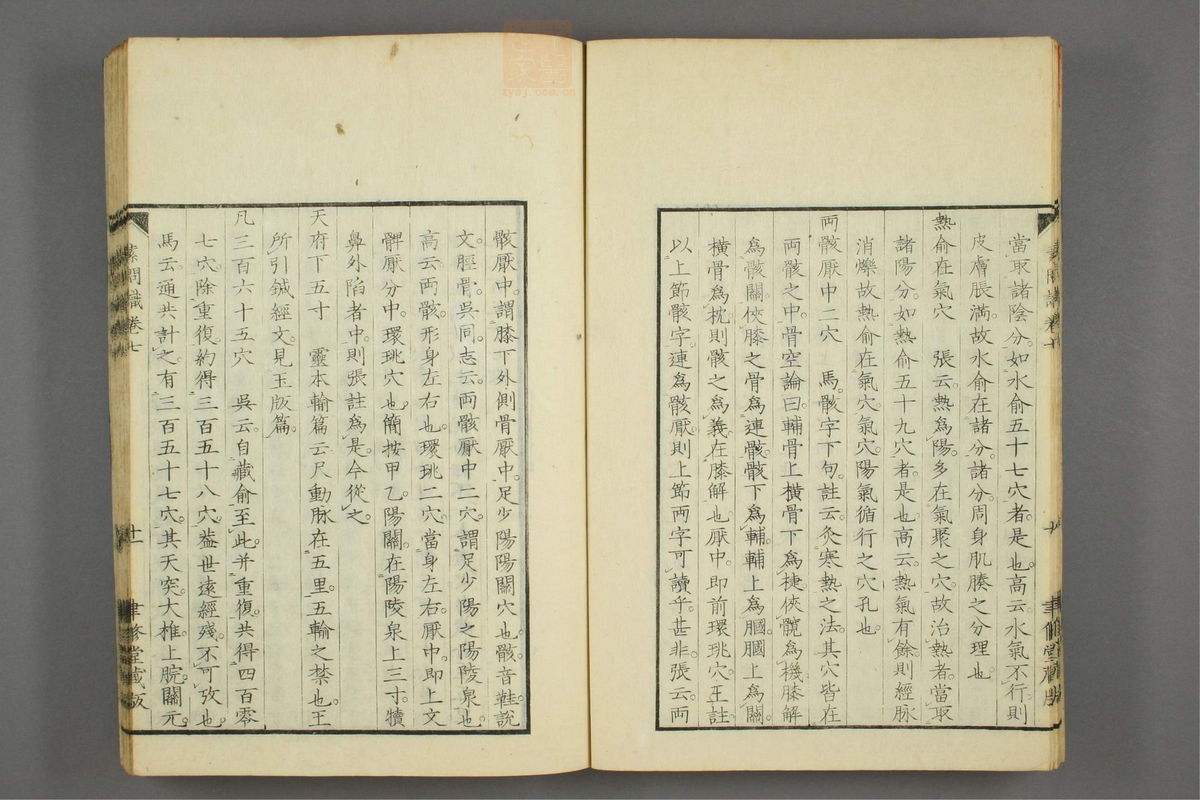 當取諸陰分。如水俞五十七穴者。是也。高云。水氣不行。則
皮膚脹滿。故水俞在諸分。諸分。周身肌腠之分理也
熱俞在氣穴　張云。熱爲陽。多在氣聚之穴。故治熱者。當取
諸陽分。如熱俞五十九穴者。是也。高云。熱氣有餘。則經脉
消爍。故熱俞在氣穴。氣穴。陽氣循行之穴孔也
兩骸厭中二穴　馬。骸字下句。註云。灸寒熱之法。其穴皆在
兩骸之中。骨空論曰。輔骨上橫骨下爲楗。俠髖爲機。膝解
爲骸關。俠膝之骨爲連骸。骸下爲輔。輔上爲膕。膕上爲關。
橫骨爲枕。則骸之爲義。在膝解也。厭中。即前環珧穴。王註
以上節骸字。連爲骸厭。則上節兩字可讀乎。甚非。張云。兩
骸厭中。謂膝下外側骨厭中。足少陽陽關穴也。骸音鞋。說
文。脛骨。吳同。志云。兩骸厭中二穴。謂足少陽之陽陵泉也。
高云。兩骸。形身左右也。環珧二穴。當身左右厭中。即上文
髀厭分中。環珧穴也。簡按甲乙。陽關。在陽陵泉上三寸。犢
鼻外陷者中。則張註爲是。今從之。
天府下五寸　靈本輸篇云。尺動脉在五里。五輸之禁也。王
所引鍼經文。見玉版篇。
凡三百六十五穴　吳云。自藏俞至此。并重復。共得四百零
七穴。除重復。約得三百五十八穴。葢世遠經殘。不可攷也。
馬云。通共計之。有三百五十七穴。其天突。大椎。上脘。關元。
素問識卷七
十一
聿修堂藏板